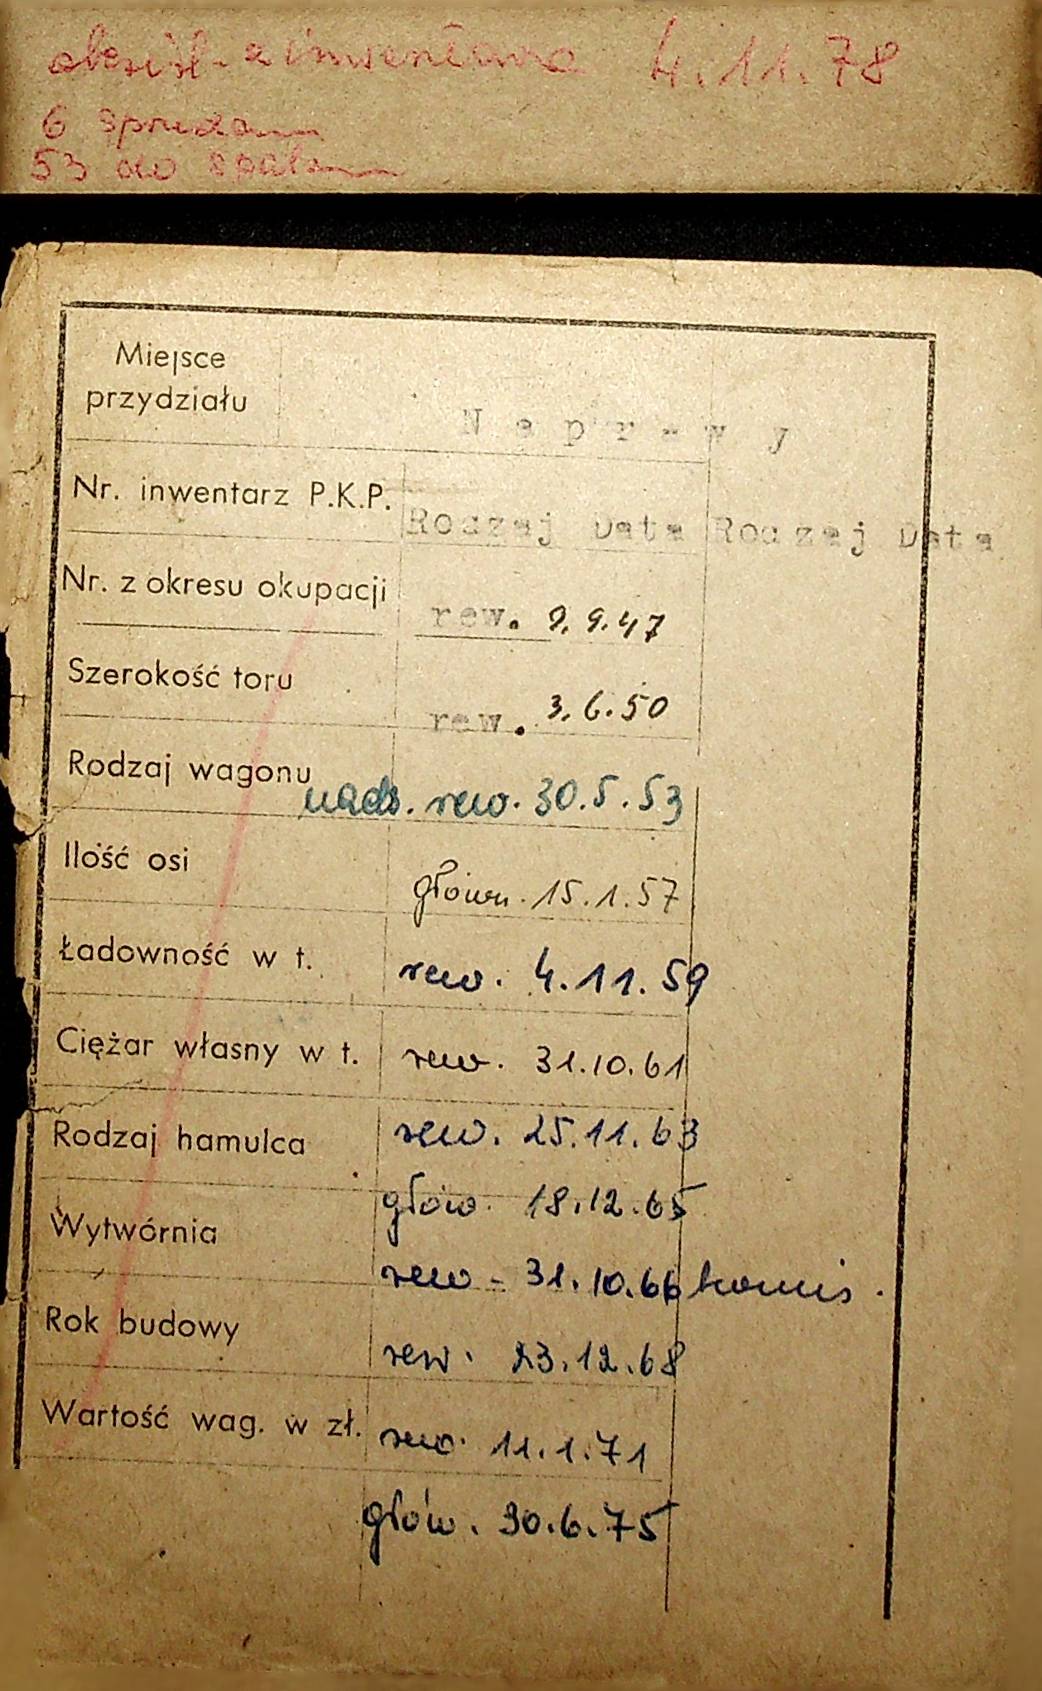 4.11.78
6
53 do
Miejsce
przydziału
N a p r a w y
Nr. inwentarz P.K.P.
Rodzaj Data Rodzaj Data
Nr. z okresu okupacji
rew. 9.9.47
Szerokość toru
rew. 3.6.50
Rodzaj wagonu
nadz. rew. 30.5.53
Ilość osi
główn. 15.1.57
Ładowność w t.
rew. 4.11.59
Ciężar własny w t.
rew. 31.10.61
Rodzaj hamulca
rew. 25.11.63
głów. 18.12.65
Wytwórnia
rew - 31.10.66 komis.
Rok budowy
rew. 23.12.68
Wartość wag. w zł.
rew. 11.1.71
głów. 30.6.75